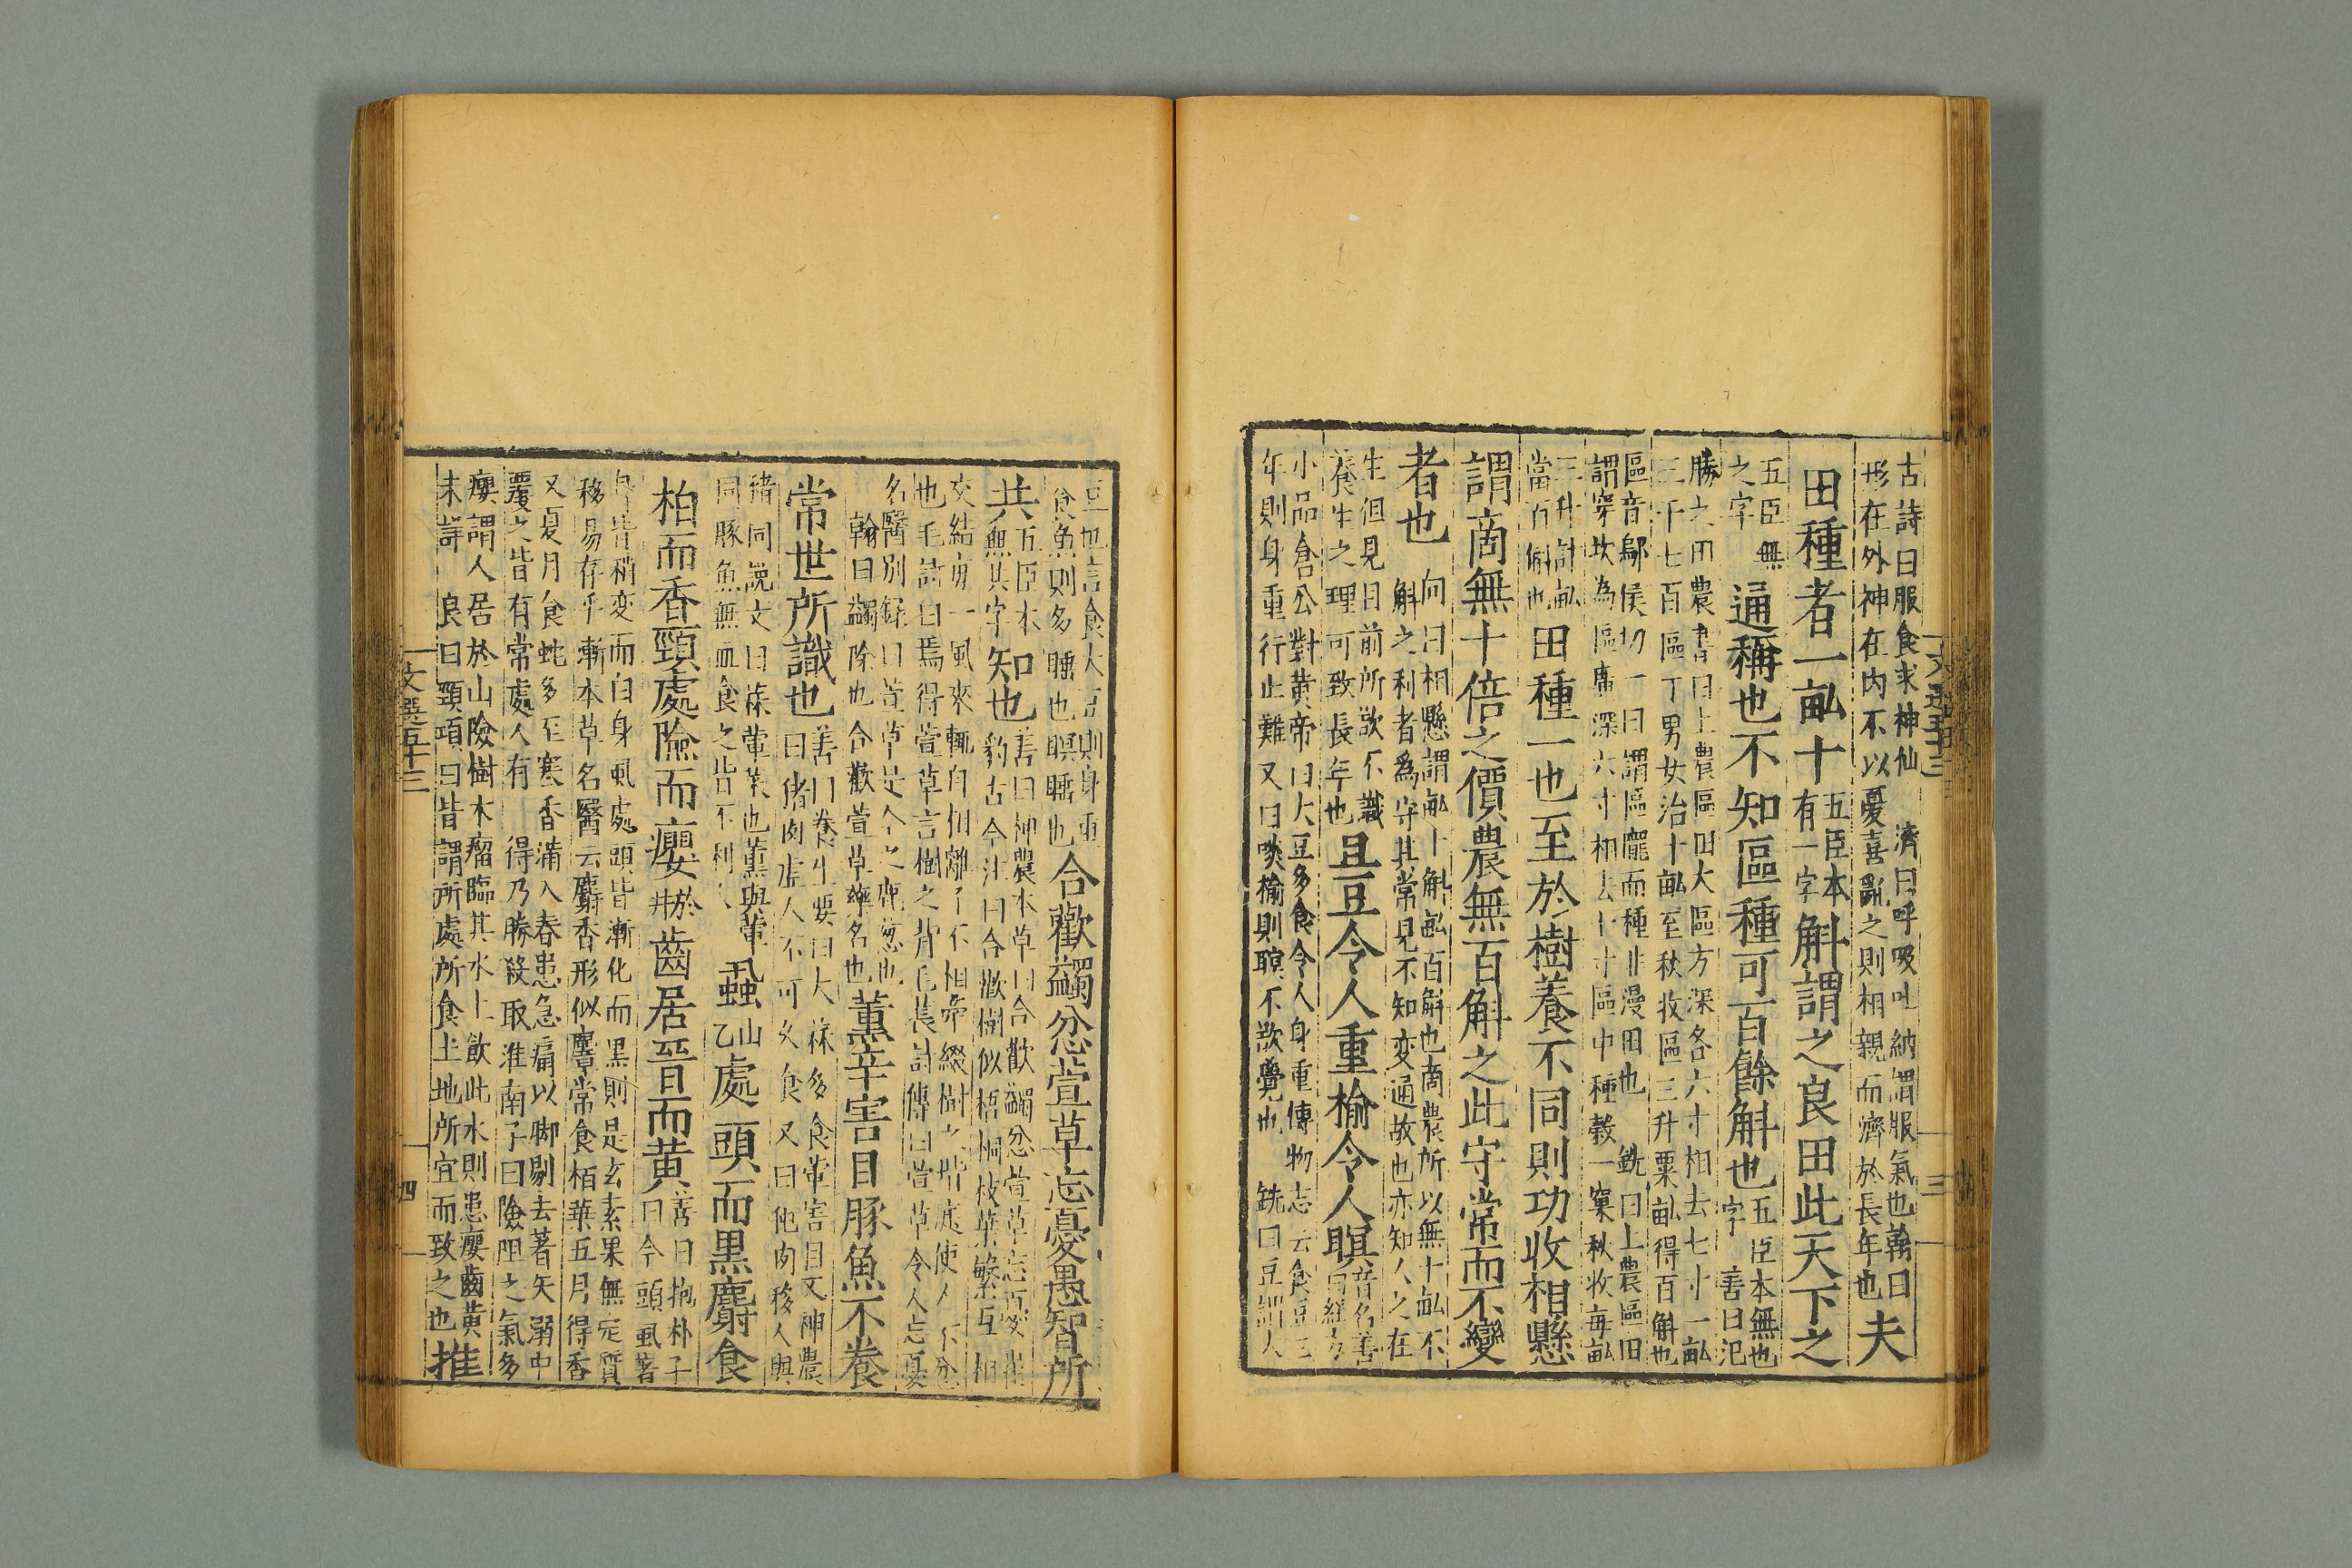 古詩曰服食求神仙 濟曰呼吸吐納謂服氣也翰曰
形在外神在内不以憂喜亂之則相親而濟於長年也 夫
田種者一畝十 五臣本有一字 斛謂之良田此天下之
五臣無之字 通稱也不知區種可百餘斛也 五臣本無也字 善曰氾
勝之田農書曰上農區田大區方深各六寸相去七寸一畝
三千七百區丁男女治十畝至秋收區三升粟畝得百斛也
區音鄔侯切一曰謂區隴而種非漫田也 銑曰上農區田
謂穿坎為區廣深六寸相去七寸區中種穀一窠秋收每畝
三升計畝
當百斛也 田種一也至於樹養不同則功收相懸
謂商無十倍之價農無百斛之此守常而不變
者也 向曰相懸謂畝十斛畝百斛也商農所以無十畝不
斛之利者為守其常見不知変通故也亦知人之在
生但見目前所欲不識
養生之理可致長年也 且豆令人重榆令人瞑 音名善曰經方
小品倉公對黄帝曰大豆多食令人身重博物志云食豆三
年則身重行止難又曰啖榆則瞑不欲覺也 銑曰豆謂人
豆也言食大豆則身重
食魚則多睡也瞑睡也 合歡蠲忿萱草忘憂愚智所
共 五臣本無共字 知也 善曰神農本草曰合歡蠲忿萱草忘憂崔
豹古今注曰合歡樹似梧桐枝葉繁互相
交結每一風來輒自相離了不相牽綴樹之堦庭使人不忿
也毛詩曰焉得萱草言樹之背毛萇詩傳曰萱草令人忘憂
名醫別錄曰萱草是今之鹿葱也
翰曰蠲除也合歡萱草藥名也 薰辛害目豚魚不養
常世所識也 善曰養生要曰大蒜多食葷害目又神農
曰猪肉虛人不可久食又曰他肉移人與
猪同說文曰蒜葷菜也薰與葷
同豚魚無血食之皆不利人 蝨 山乙 處頭而黒麝食
柏而香頸處險而癭 於井 齒居晉而黄 善曰抱朴子
曰今頭虱著
身皆稍変而白身虱處頭皆漸化而黒則是玄素果無定質
移易存乎漸本草名醫云麝香形似麞常食栢葉五月得香
又夏月食蛇多至寒香滿入春患急痛以脚剔去著矢溺中
覆之皆有常處人有 得乃勝殺取淮南子曰險阻之氣多
癭謂人居於山險樹木瘤臨其水上飲此水則患癭齒黄
未詳 良曰頸項曰皆謂所處所食土地所宜而致之也 推
文選五十三
三
文選五十三
四